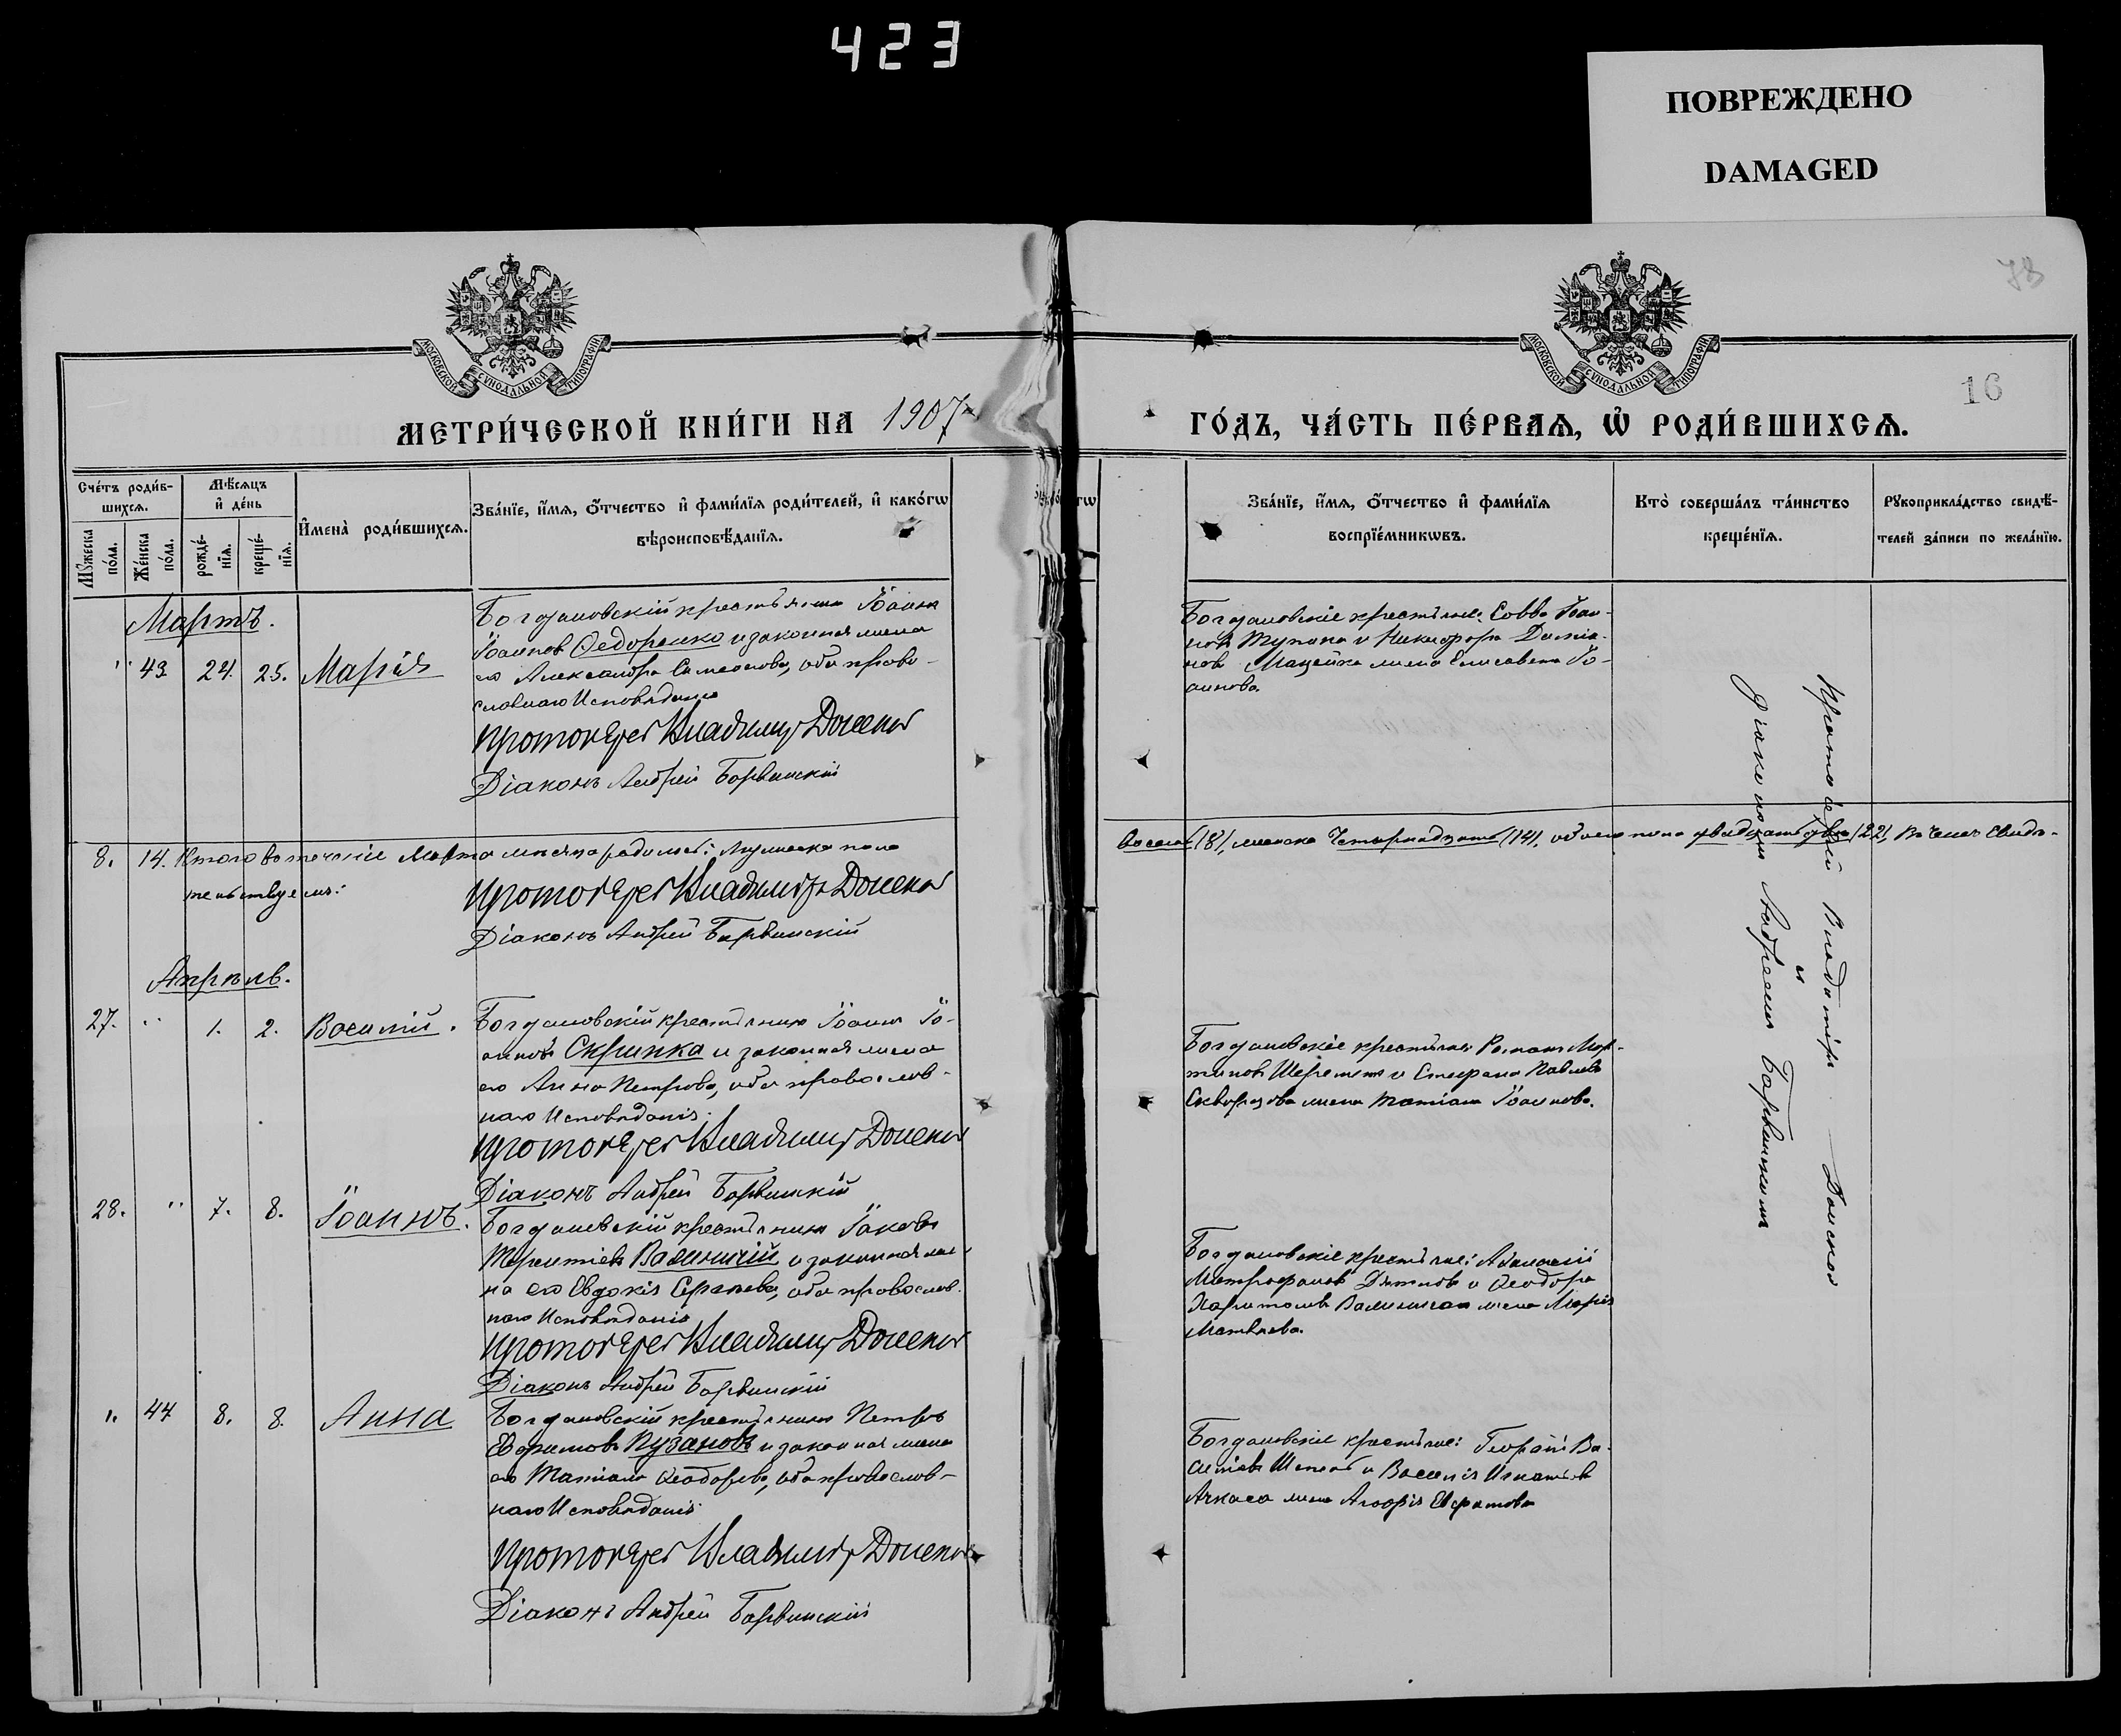 423
ПОВРЕЖДЕНО
DAMAGED
78
16
МОСКОВСКОЙ СѴНОДАЛЬНОЙ ТИПОГРАФІИ
МОСКОВСКОЙ СѴНОДАЛЬНОЙ ТИПОГРАФІИ
МЕТРИ́ЧЕСКОЙ КНИ́ГИ НА 1907
ГО́ДЪ, ЧА́СТЬ ПЕ́РВАѦ, Ѡ҆ РОДИ́ВШИХСѦ.
Сче́тъ роди́в-
шихсѧ.
Мꙋжеска по́ла.
Же́нска по́ла.
Мѣ́сѧцъ
и҆ де́нь
рожде́-
нїѧ.
креще́-
нїѧ.
И҆мена̀ роди́вшихсѧ.
Зва́нїе, и҆́мѧ, ѻ҆́тчество и҆ фами́лїѧ роди́телей, и҆ како́гѡ
вѣроисповѣ́данїѧ.
Зва́нїе, и҆́мѧ, ѻ҆́тчество и҆ фами́лїѧ
воспрїе́мникѡвъ.
Кто̀ соверша́лъ та́инство
креще́нїѧ.
Рꙋкоприкла́дство свидѣ́-
телей за́писи по жела́нїю.
Мартъ.
" 43 24. 25. Марія
Богдановскій крестьянинъ Іоаннъ
Іоанновъ Ѳедоренко и законная жена
его Александра Симеонова, оба право-
славнаго Исповѣданія
Протоіерей Владимиръ Донсковъ
Діаконъ Андрей Барвинскій
Богдановскіе крестьяне: Савва Іоан-
новъ Тупика и Никифора Даміа-
нова Мацейка жена Елисавета Іо-
аннова.
8. 14. Итого въ теченіе Марта мѣсяца родилось: Мужеска пола
восемь (8), женска Четырнадцать (14), обоего пола двадцать два (22), Въ чемъ Свидѣ-
тельствуемъ:
Протоіерей Владимиръ Донсковъ
Діаконъ Андрей Барвинскій
Апрѣль.
27. " 1. 2. Василій.
Богдановскій крестьянинъ Іоаннъ Іо-
анновъ Скрипка и законная жена
его Анна Петрова, оба православ-
наго Исповѣданія.
Протоіерей Владимиръ Донсковъ
Діаконъ Андрей Барвинскій
Богдановскіе крестьяне: Романъ Мар-
тиновъ Шереметъ и Стефана Павлова
Скворцова жена Татіана Іоаннова.
28. " 7. 8. Іоаннъ.
Богдановскій крестьянинъ Іаковъ
Терентіевъ Валиницкій и законная же-
на его Евдокія Сергѣева, оба православ-
наго Исповѣданія
Протоіерей Владимиръ Донсковъ
Діаконъ Андрей Барвинскій
Богдановскіе крестьяне: Аѳанасій
Митрофановъ Дятловъ и Ѳеодора
Харитонова жена Марія
Матвѣева.
" 44 8. 8. Анна
Богдановскій крестьянинъ Петръ
Ефимовъ Пузановъ и законная жена
его Татіана Ѳеодорова, оба православ-
наго Исповѣданія
Протоіерей Владимиръ Донсковъ
Діаконъ Андрей Барвинскій
Богдановскіе крестьяне: Георгій Ва-
силіевъ и Василія Игнатьева
жена Агафія Ефимова
Протоіерей Владиміръ Донсков
и
Діакономъ Андреемъ Барвинскимъ